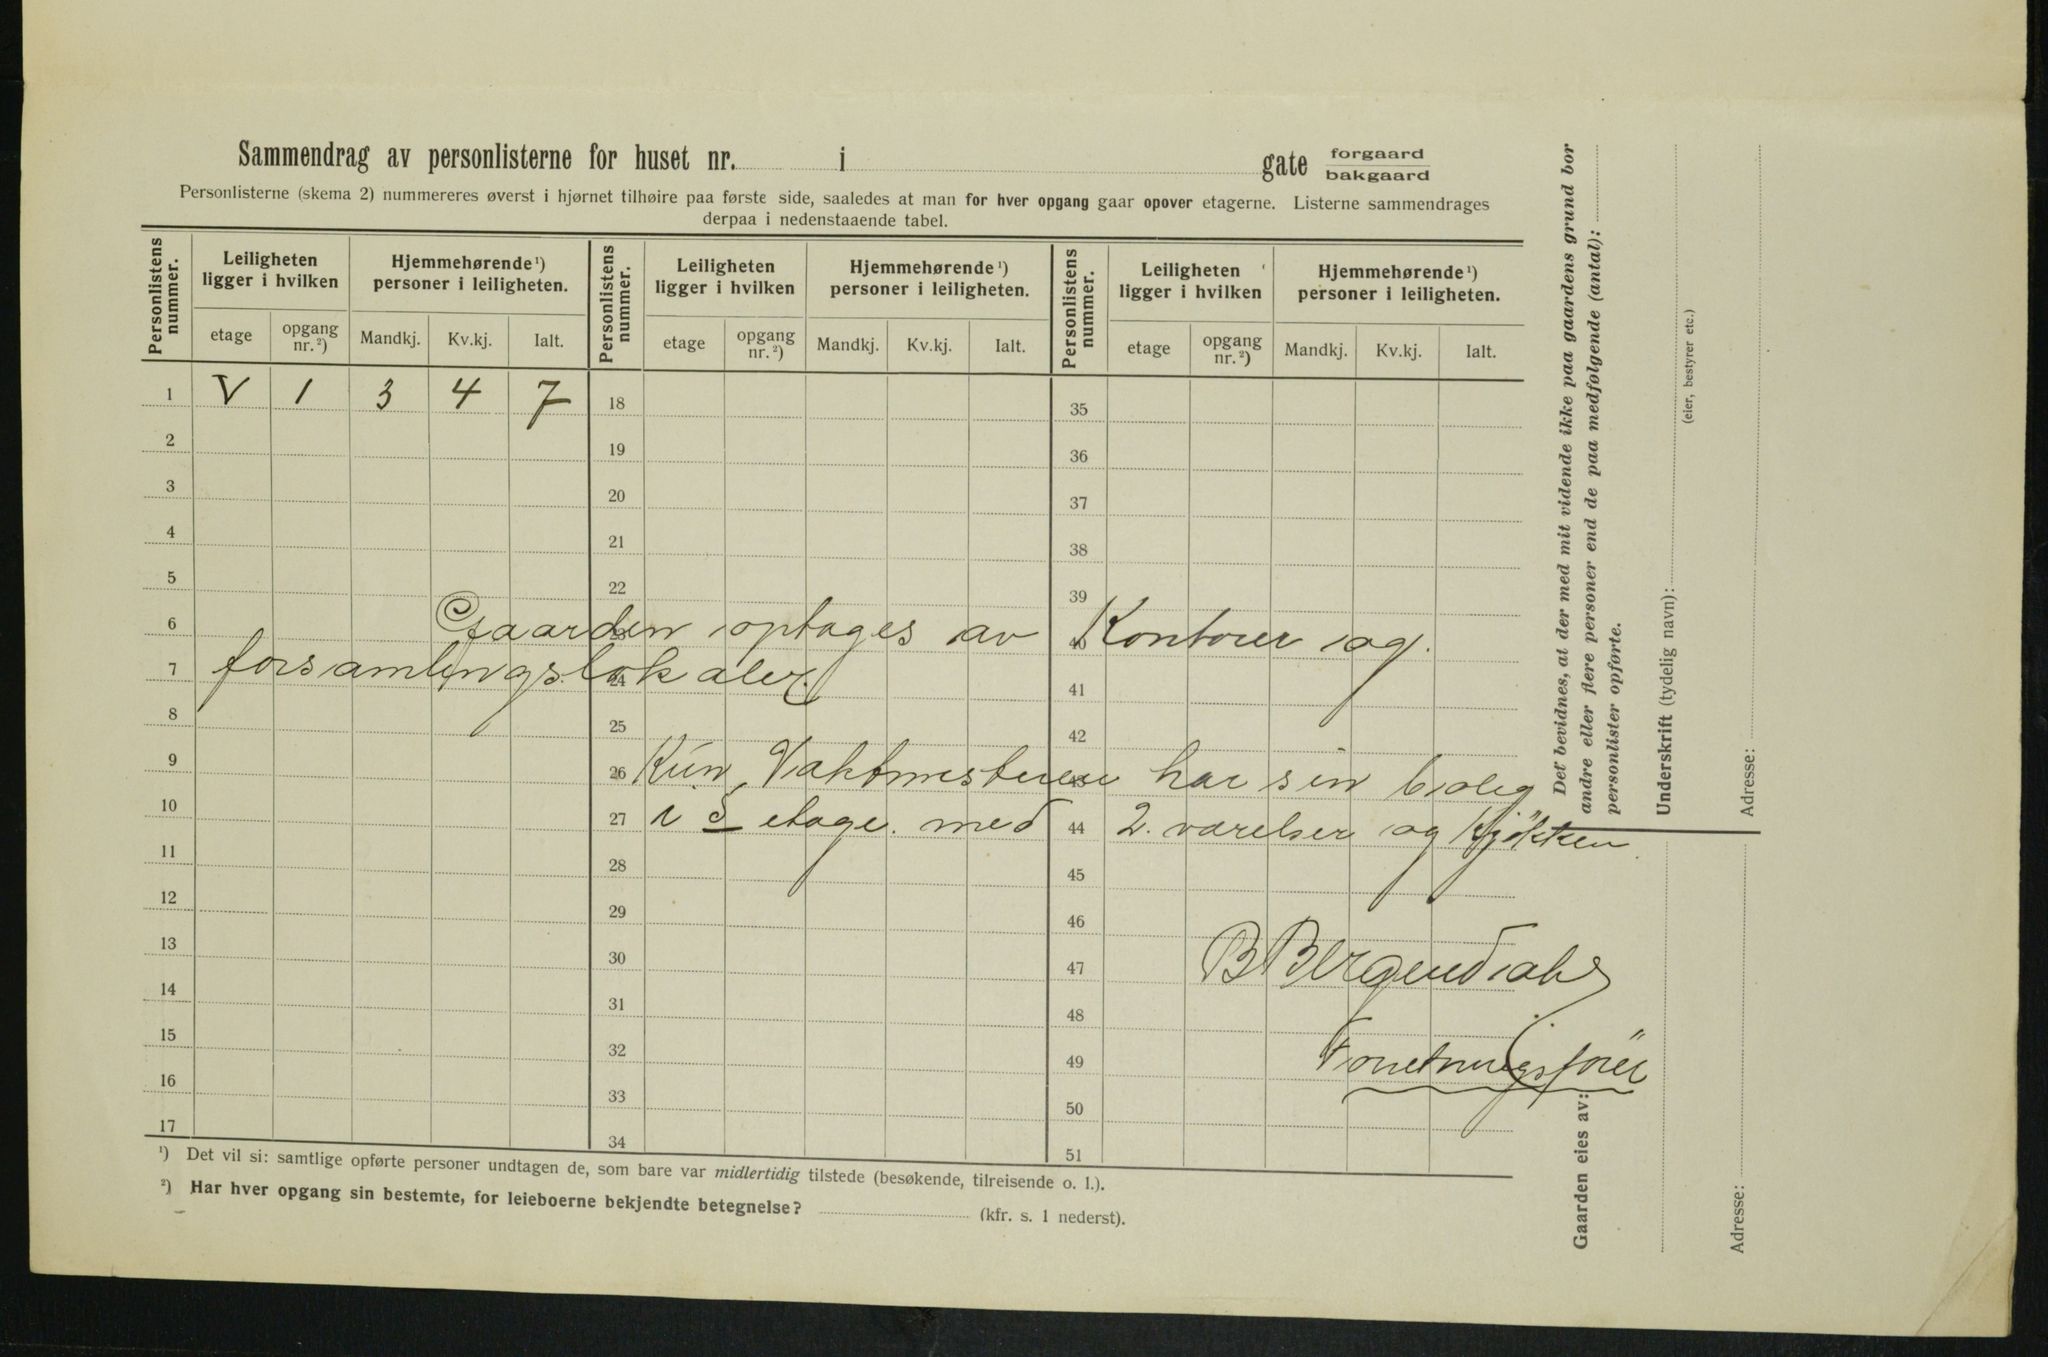 Sammendrag av personlisterne for huset nr. i gate forgaard bakgaard
Personlisterne (skema 2) nummereres øverst i hjørnet tilhøire paa første side, saaledes at man for hver opgang gaar opover etagerne. Listerne sammendrages
derpaa i nedenstaaende tabel.
Personlistens nummer. Leiligheten ligger i hvilken Hjemmehørende ¹) personer i leiligheten. Personlistens nummer. Leiligheten ligger i hvilken Hjemmehørende ¹) personer i leiligheten. Personlistens nummer. Leiligheten ligger i hvilken Hjemmehørende ¹) personer i leiligheten.
etage opgang nr. ²) Mandkj. Kv.kj. Ialt. etage opgang nr. ²) Mandkj. Kv.kj. Ialt. etage opgang nr. ²) Mandkj. Kv.kj. Ialt.
1 V 1 3 4 7 18 35
2 19 36
3 20 37
4 21 38
5 22 39
6 23 40
Gaarden optages av Kontorer og.
7 24 41
forsamlingslokaler.
8 25 42
9 26 43
Kun Vaktmesteren har sin bolig
10 27 44
i 5 etage. med 2. værelser og Kjökken
11 28 45
12 29 46
13 30 47
B
14 31 48
15 32 49
Forretningsförer
16 33 50
17 34 51
¹) Det vil si: samtlige opførte personer undtagen de, som bare var midlertidig tilstede (besøkende, tilreisende o. l.).
²) Har hver opgang sin bestemte, for leieboerne bekjendte betegnelse? (kfr. s. 1 nederst).
Det bevidnes, at der med mit vidende ikke paa gaardens grund bor
andre eller flere personer end de paa medfølgende (antal):
personlister opførte.
Underskrift (tydelig navn):
(eier, bestyrer etc.)
Adresse:
Gaarden eies av:
Adresse: